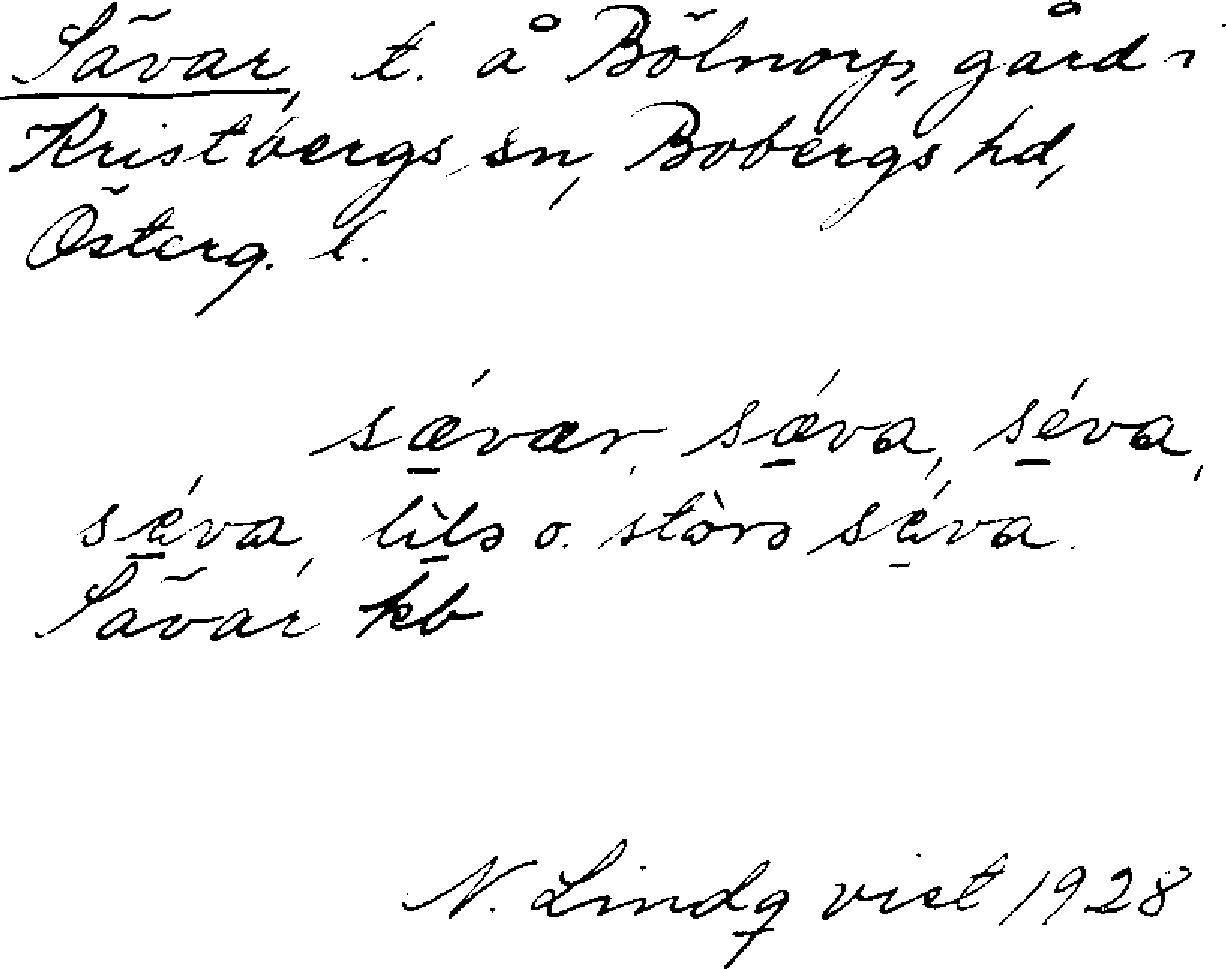 Sävar, t. å Bölnorp, gård i
Kristbergs sn, Bobergs hd,
Österg. l.
sǽ̱vær, sǽ̱va, sé̱va,
sé̱va, lì̱lə o. stòrə sé̱va.
Sävar kb
N. Lindqvist 1928